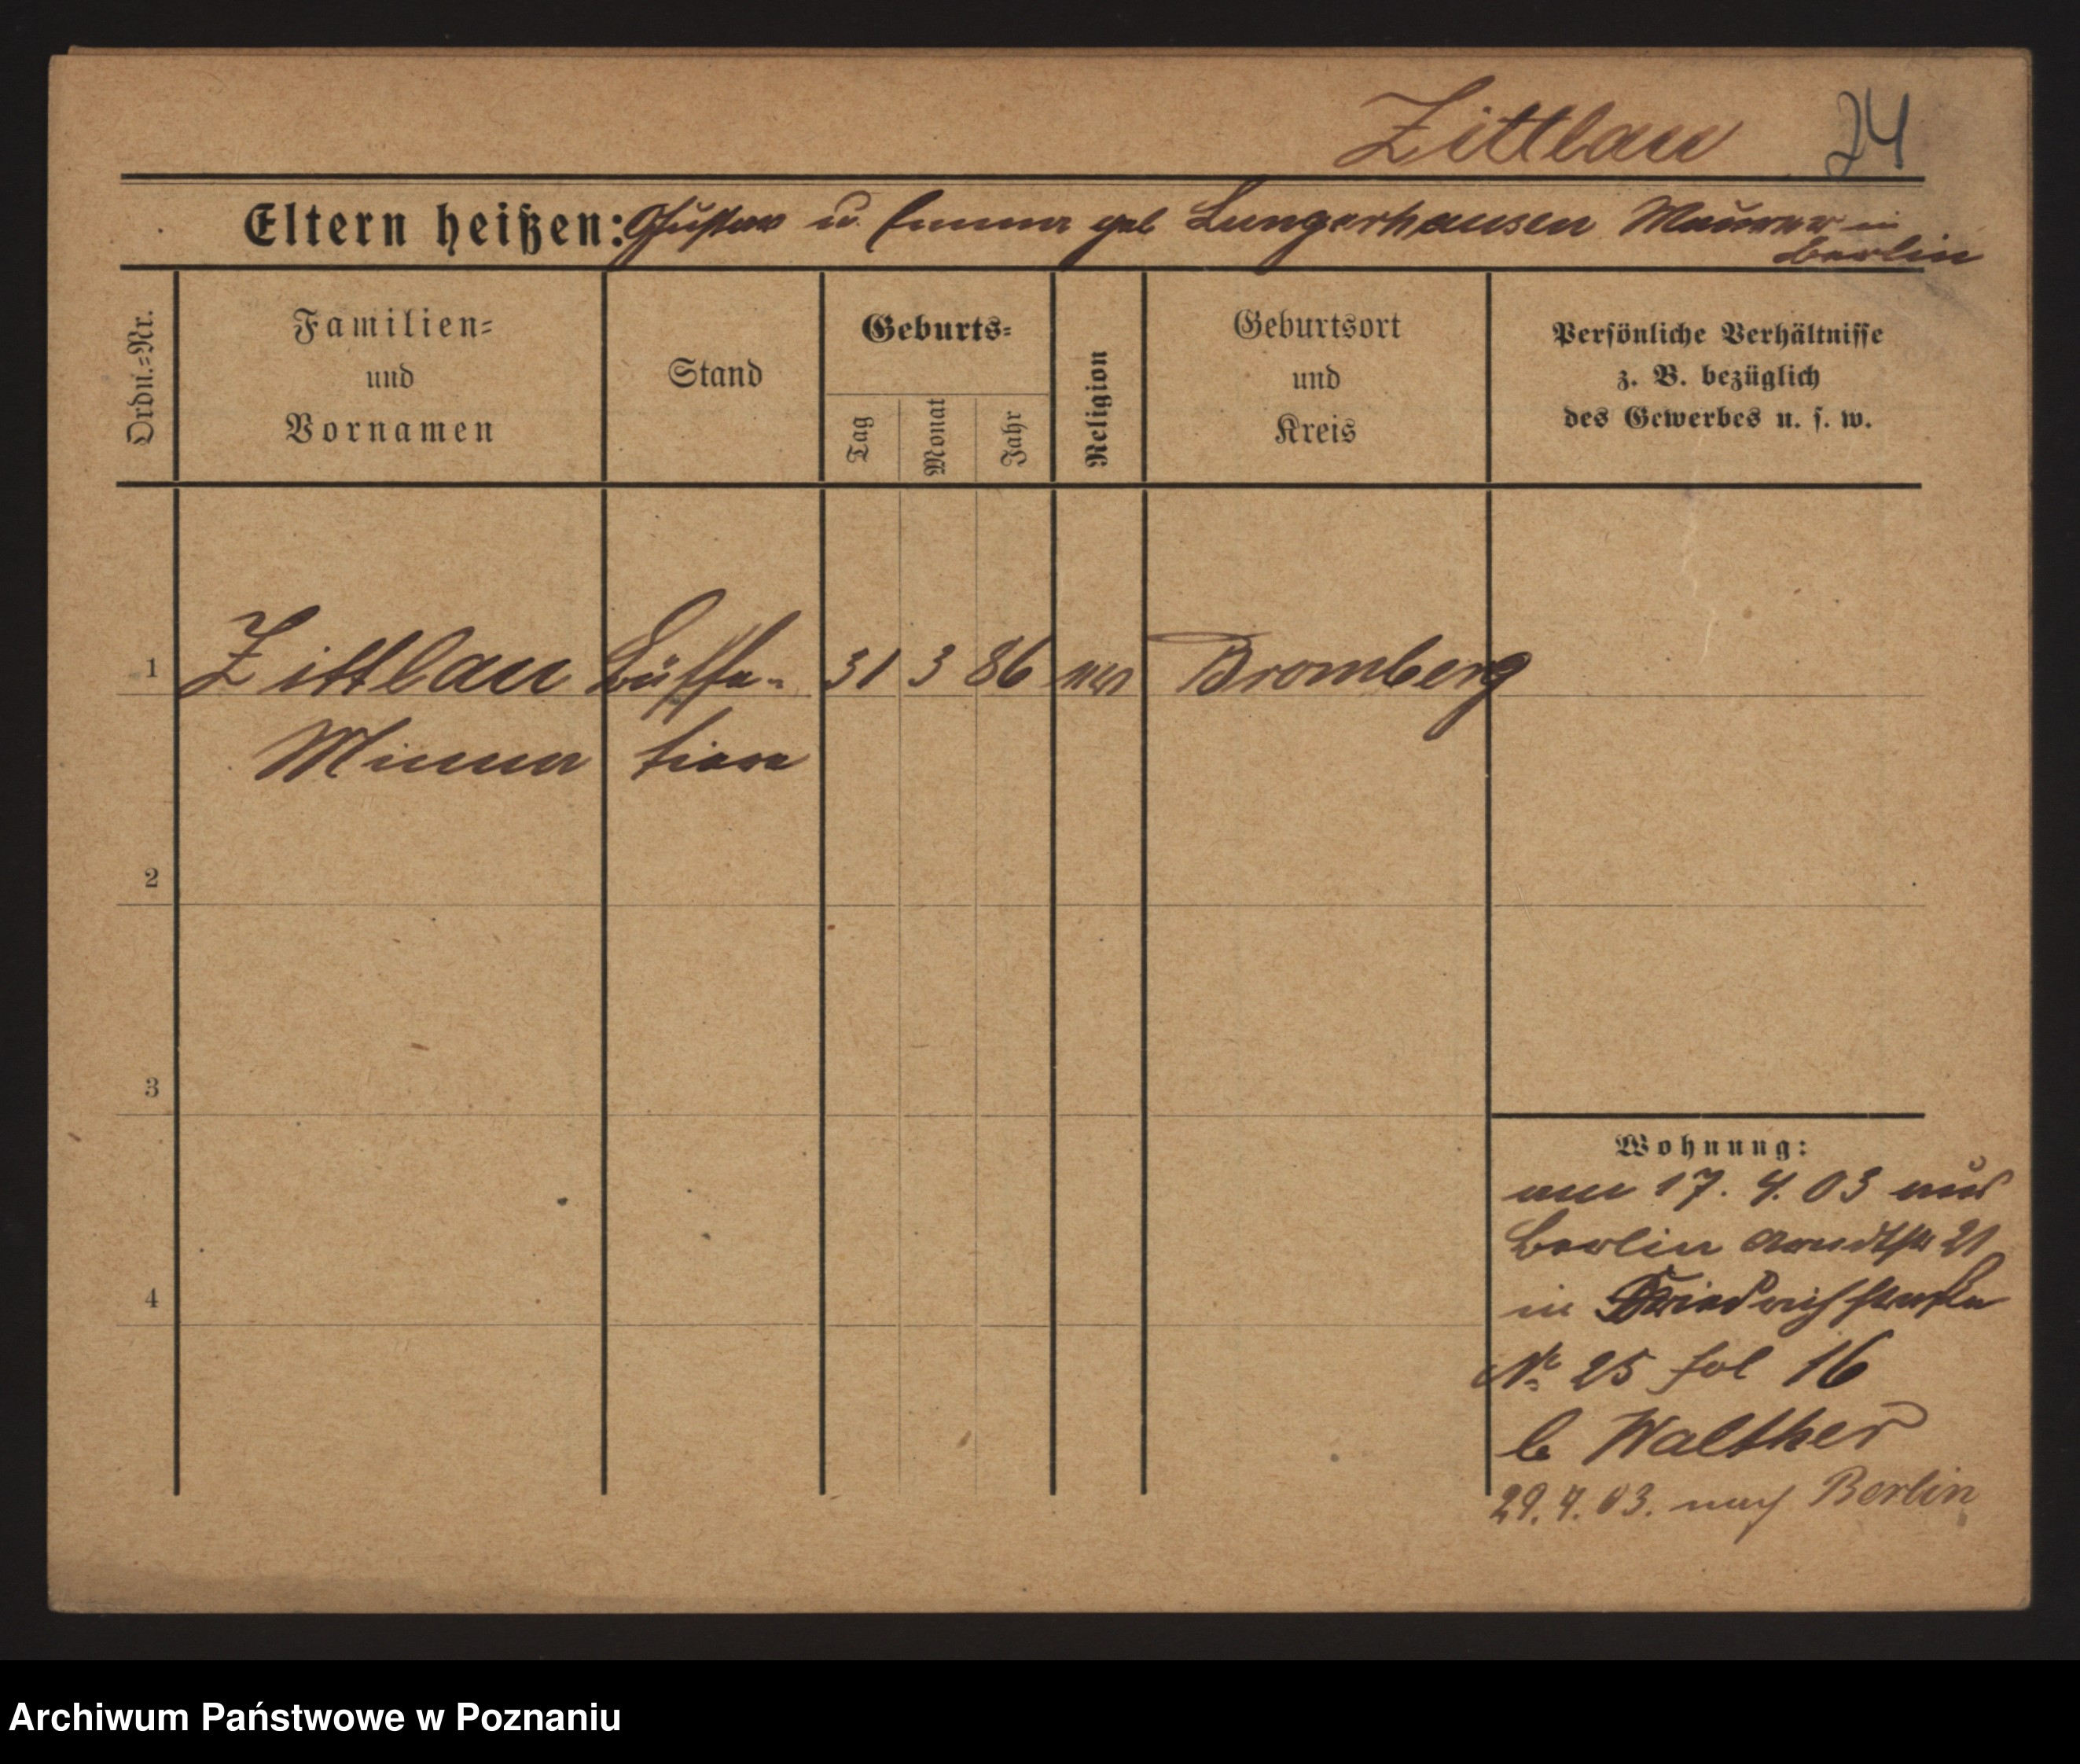 Zittlau 24
Eltern heißen: Gustav u. Emma geb Lungershausen Maurer in
Berlin
Ordn.-Nr.
Familien-
und
Vornamen
Stand
Geburts-
Tag
Monat
Jahr
Religion
Geburtsort
und
Kreis
Persönliche Verhältnisse
z. B. bezüglich
des Gewerbes u. s. w.
1 Zittlau Büffe- 31 3 86 Bromberg
Minna tiere
2
3
4
Wohnung:
am 17. 4. 03 aus
Berlin Arndtstr 21
in Friedrichstraße
No 25 fol 16
b Walther
29. 4. 03. nach Berlin
Archiwum Państwowe w Poznaniu